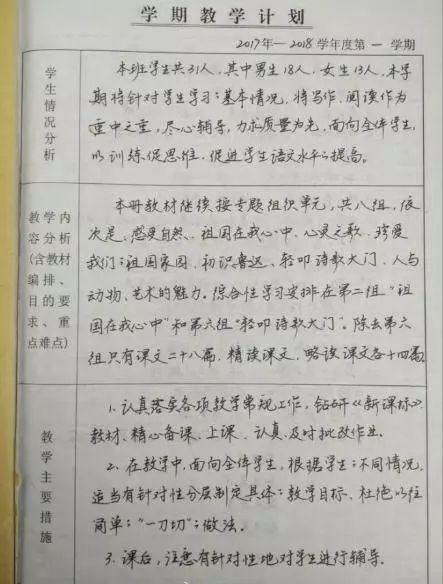 学期教学计划
2017年—2018学年度第一学期
学生情况分析
本班学生共31人，其中男生18人，女生13人，本学
期将针对学生学习的基本情况，将写作、阅读作为
重中之重，尽心辅导，力求质量为先，面向全体学生，
以训练促思维，促进学生语文水平的提高。
教学内
容分析
(含教材
编排、
目的要
求、重
点难点)
本册教材继续按专题组织单元，共八组，依
次是：感受自然、祖国在我心中、心灵之歌、珍爱
我们的祖国家园、初识鲁迅、轻叩诗歌大门、人与
动物、艺术的魅力。综合性学习安排在第二组“祖
国在我心中”和第六组“轻叩诗歌大门”。除去第六
组只有课文二十八篇，精读课文、略读课文各十四篇。
教学主要措施
1.认真落实各项教学常规工作，钻研《新课标》、
教材、精心备课、上课、认真及时批改作业。
2.在教学中，面向全体学生，根据学生的不同情况，
适当有针对性分层制定具体的教学目标，杜绝以往
简单的“一刀切”的做法。
3.课后，注意有针对性地对学生进行辅导。